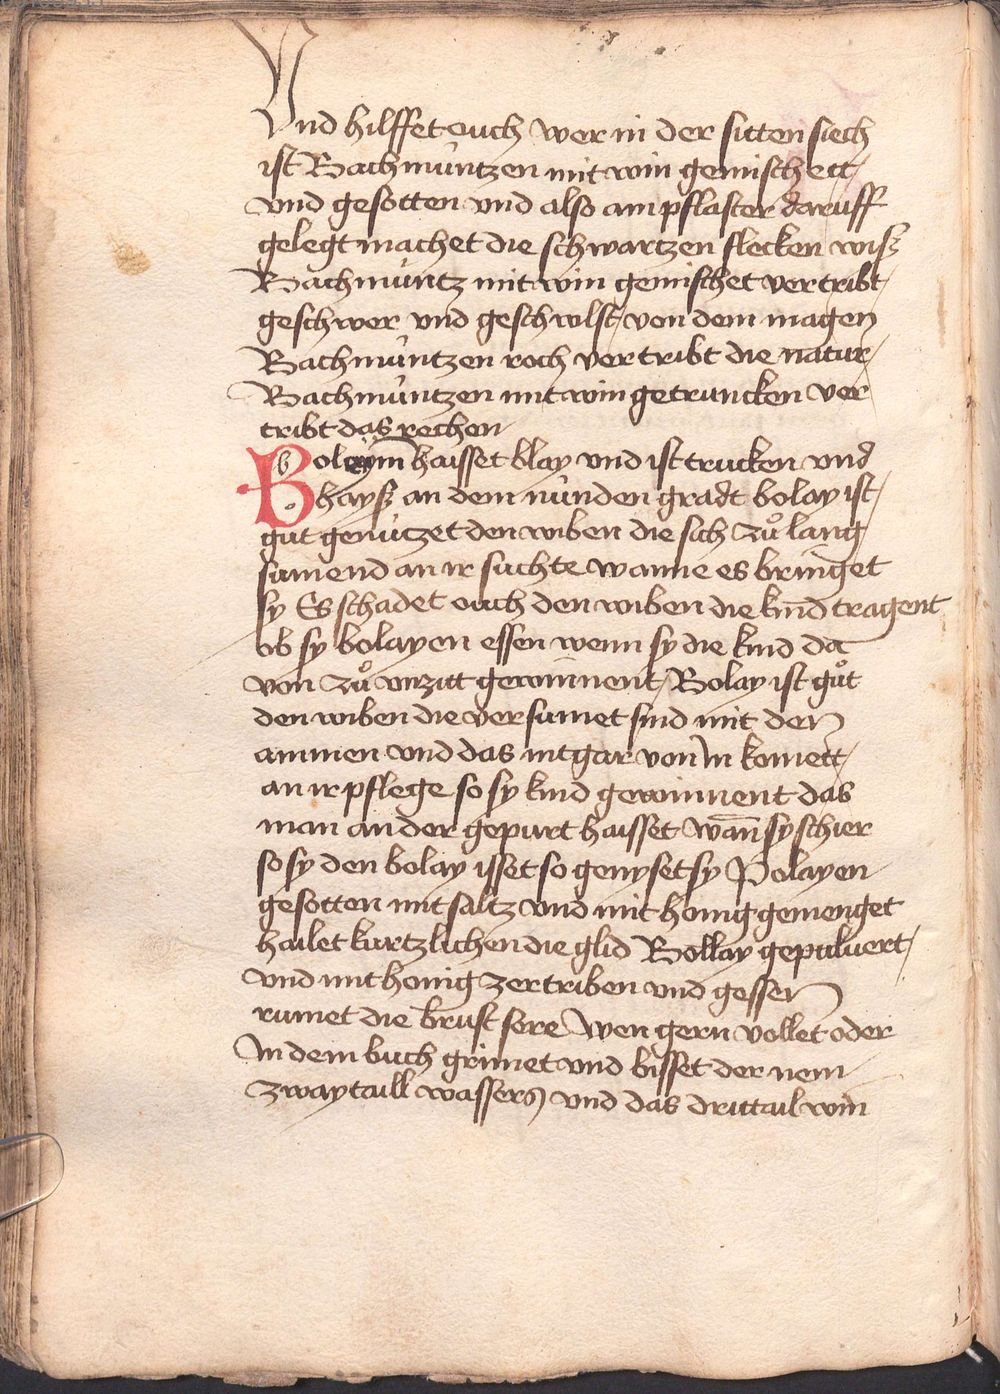 Vnd hilffet ouch wer in der sitten siech
ist Bachmúntzen mit win gemischett
vnd gesotten vnd also ain pflaster daruff
gelegt machet die schwartzen flecken wiß
Bachmúntz mit win gemischet vertribt
geschwer vnd geschwlst von dem magen
Bachmúntzen roch vertribt die natur
Bachmúntzen mit win getruncken ver
tribt das rechen
Boleyin haisset blay vnd ist trucken vnd
hayß an dem núnden gradt bolay ist
gut genúczet den wiben die sich zů lang
sumend an ir suchte wanne es bringet
sy Es schadet ouch den wiben die kind tragent
ob sy bolayen essen wenn sy die kind da
von zů vnzitt gewinnent Bolay ist gůt
den wiben die versumet sind mit der
ammen vnd das nit gar von in komett
an ir pflege so sy kind gewinnent das
man an der gepurt haisset wan̄ sy schier
so sy den bolay isset so genyset sy Polayen
gesotten mit saltz vnd mit honig gemenget
hailet kurtzlichen die glid Bollay gepuluert
vnd mit honig zertriben vnd gessen
rumet die brust sere Wen gern vollet oder
In dem buch grimet vnd bisset der nem
zway taill wassers vnd das drittail win